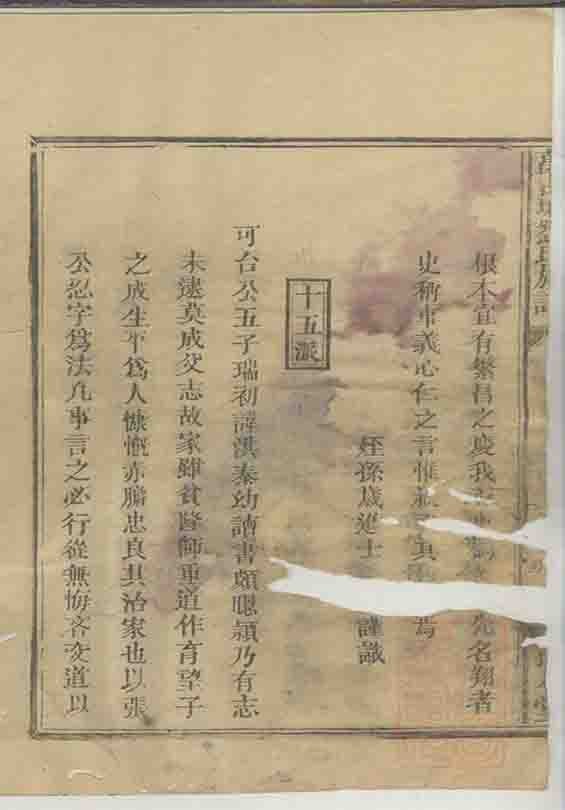 氏族譜
根本宜有繁昌之慶我先名翔者
史稱事義心仁之言惟
姪孫歲進士謹識
十五派
可台公五子瑞初諱洪泰幼讀書頗聰穎乃有志
未逮莫成父志故家雖貧隆師重道作育望子
之成生平為人慷慨赤膽忠良其治家也以張
公忍字爲法凡事言之必行從無悔吝交道以